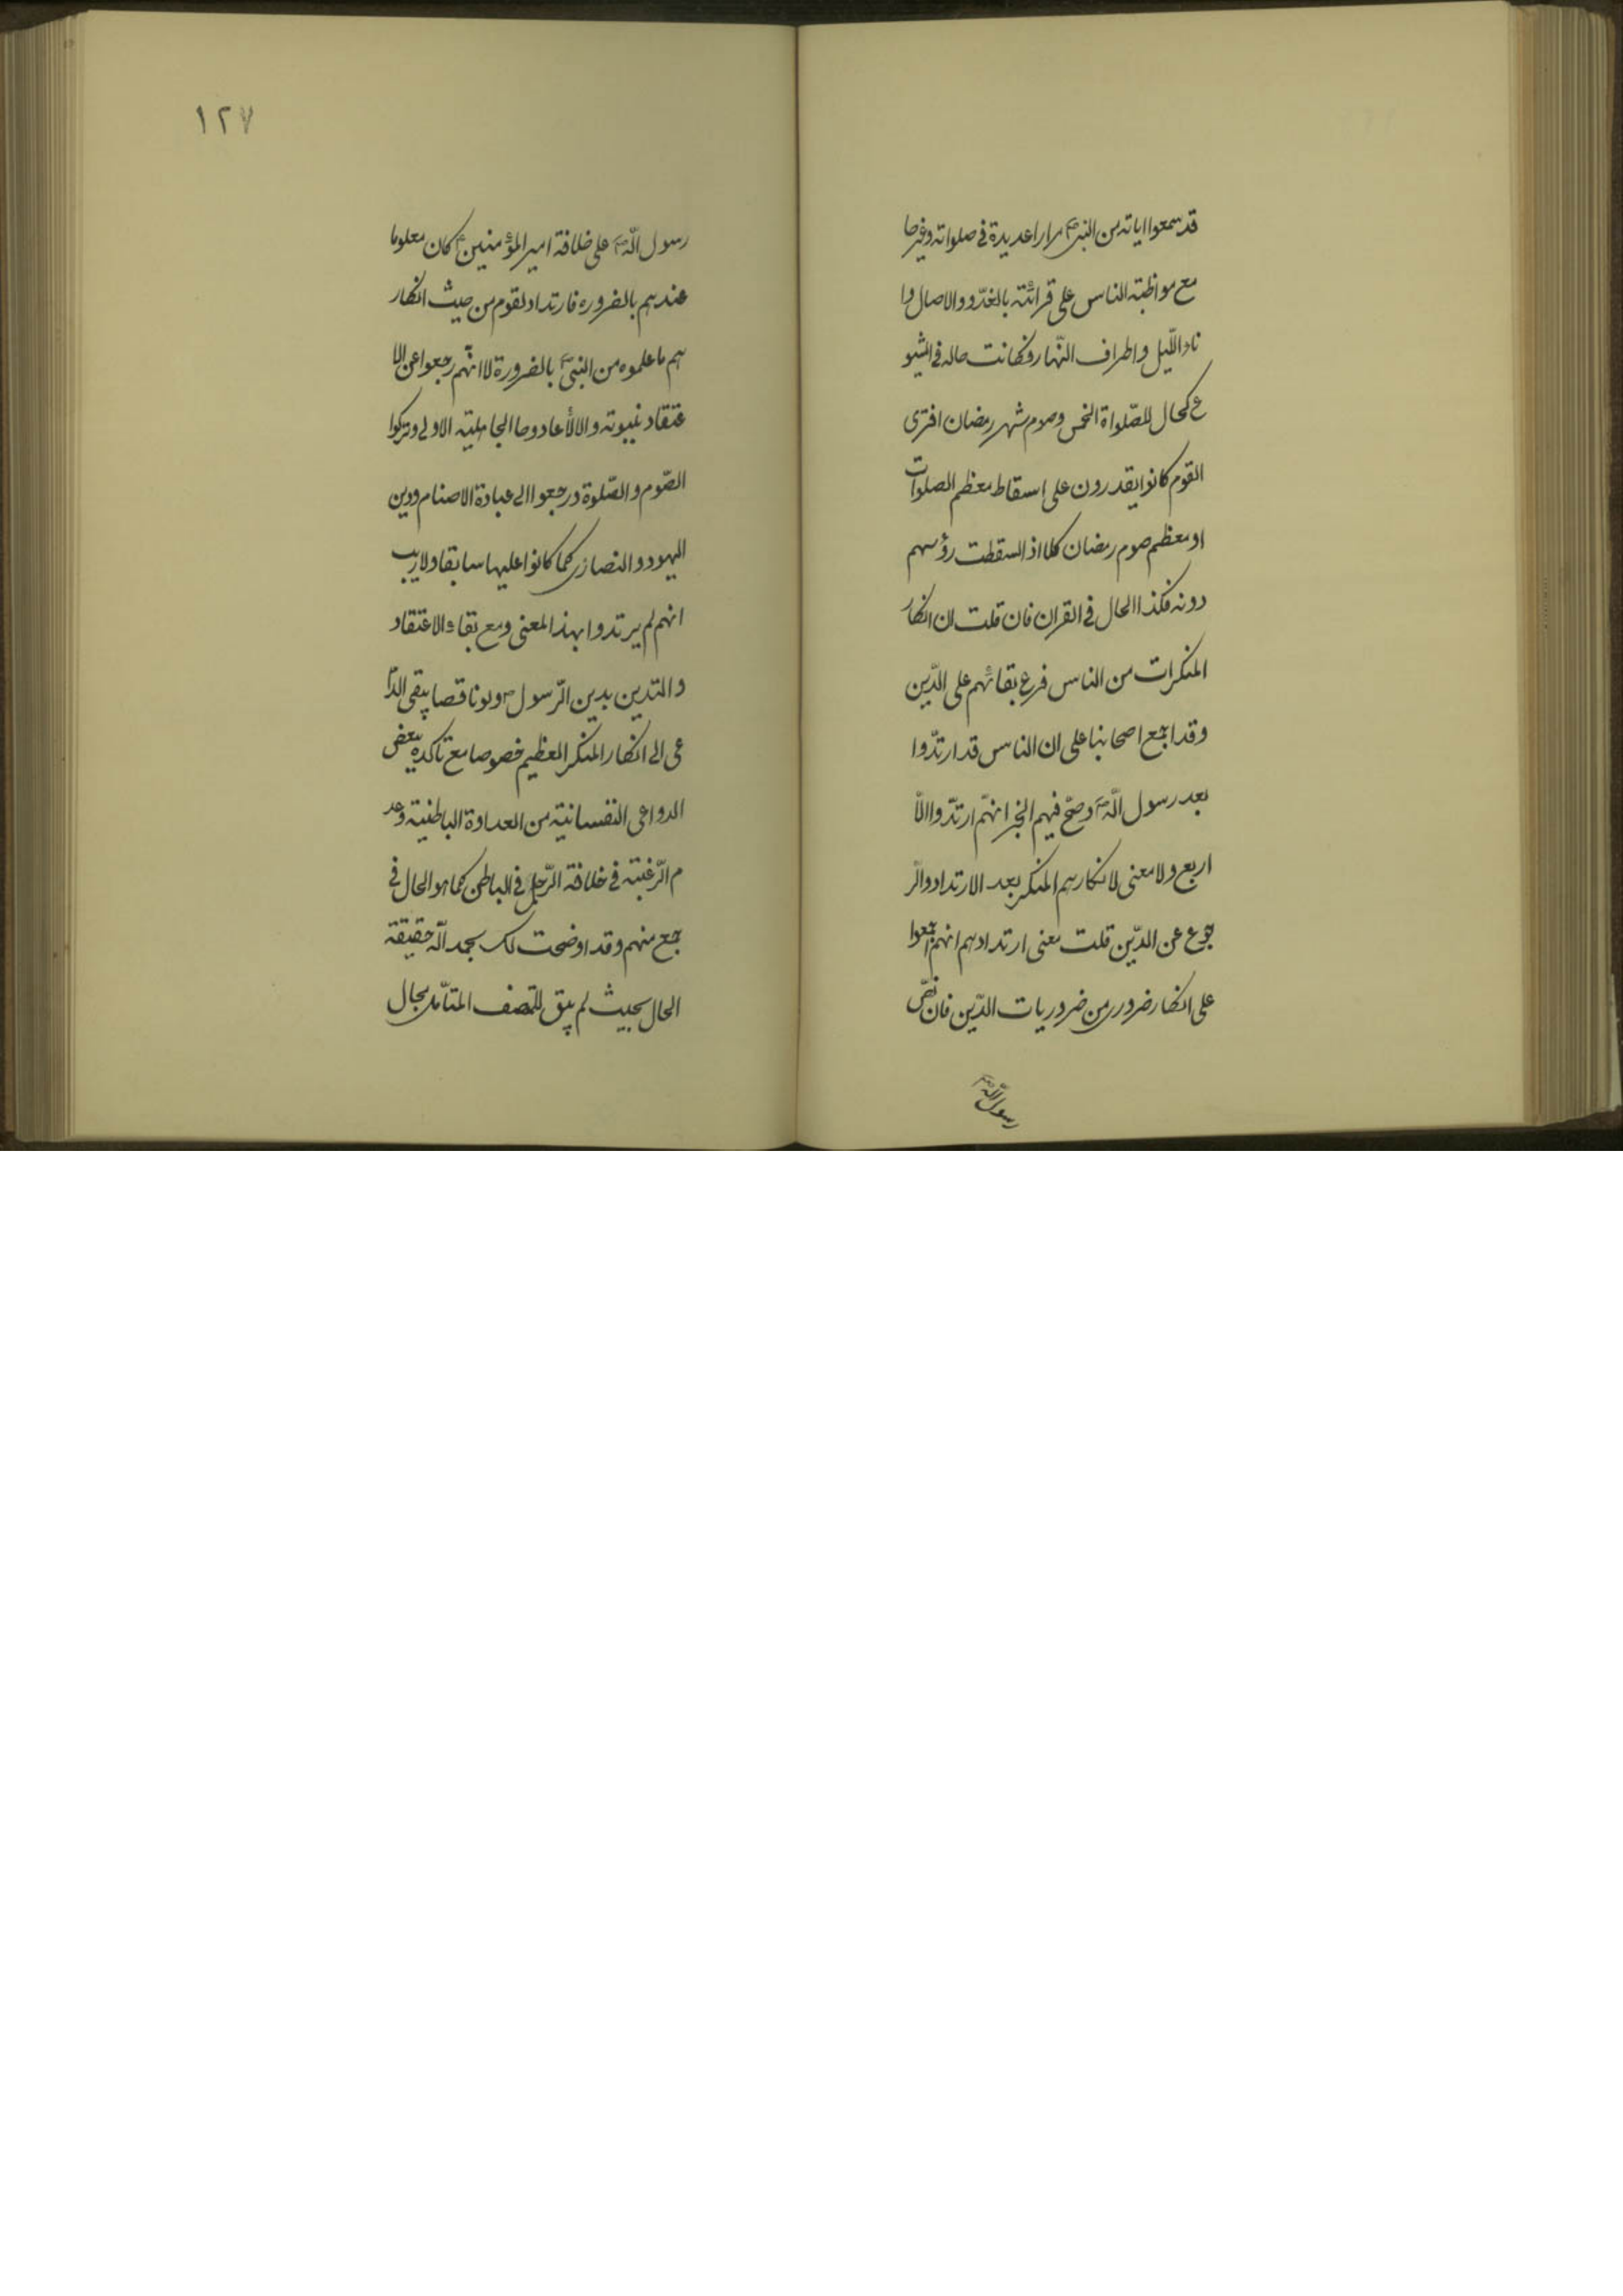 قد سمعوا اياته من النبی ص مرارا عديدة فی صلواته وغيرها
مع مواظبة الناس علی قرائته بالغدّو والاصال وا
ناء اللّيل واطراف النّهار وكانت حاله فی الشيو
ع كحال للصّلواة الخمس وصوم شهر رمضان افتری
القوم كانوا يقدرون علی اسقاط معظم الصلوات
او معظم صوم رمضان كلا اذا لسقطت رؤسهم
دونه فكذا الحال فی القران فان قلت ان انكار
المنكرات من الناس فرع بقائهم علی الدّين
وقد اجمع اصحابنا علی ان الناس قد ارتدّوا
بعد رسول اللّه ص وصحّ فيهم الخبر انهّم ارتدّوا الاّ
اربع ولا معنی لانكارهم المنكر بعد الارتداد والر
جوع عن الدّين قلت معنی ارتدادهم انهم اجمعوا
علی انكار ضروری من ضروريات الدّين فان نصّ
رسول اللّه ص
١٢٧
رسول اللّه ص علی خلافة امير المؤمنين ع كان معلوما
عندهم بالضروره فارتداد لقوم من حيث انكار
هم ما علموه من النبی ص بالضرورة لا انهّم رجعوا عن الا
عتقاد نبيوته والا لأعادوها الجاهلية الاولی وتركوا
الصّوم والصّلوة ورجعوا الی عبادة الاصنام ودين
اليهود والنصاری كما كانوا عليها سابقا ولا ريب
انهم لم يرتدوا بهذا المعنی ومع بقاء الاعتقاد
والتدين بدين الرّسول ص ولو ناقصا يبقی الدّا
عی الی انكار المنكر العظيم خصوصا مع تاكده ببعض
الدواعی النفسانية من العداوة الباطنية وعد
م الرّغبة فی خلافة الرّجل فی الباطن كما هو الحال فی
جمع منهم وقد اوضحت لك بحمد اللّه حقيقة
الحال بحيث لم يبق للمنصف المتأمل مجال